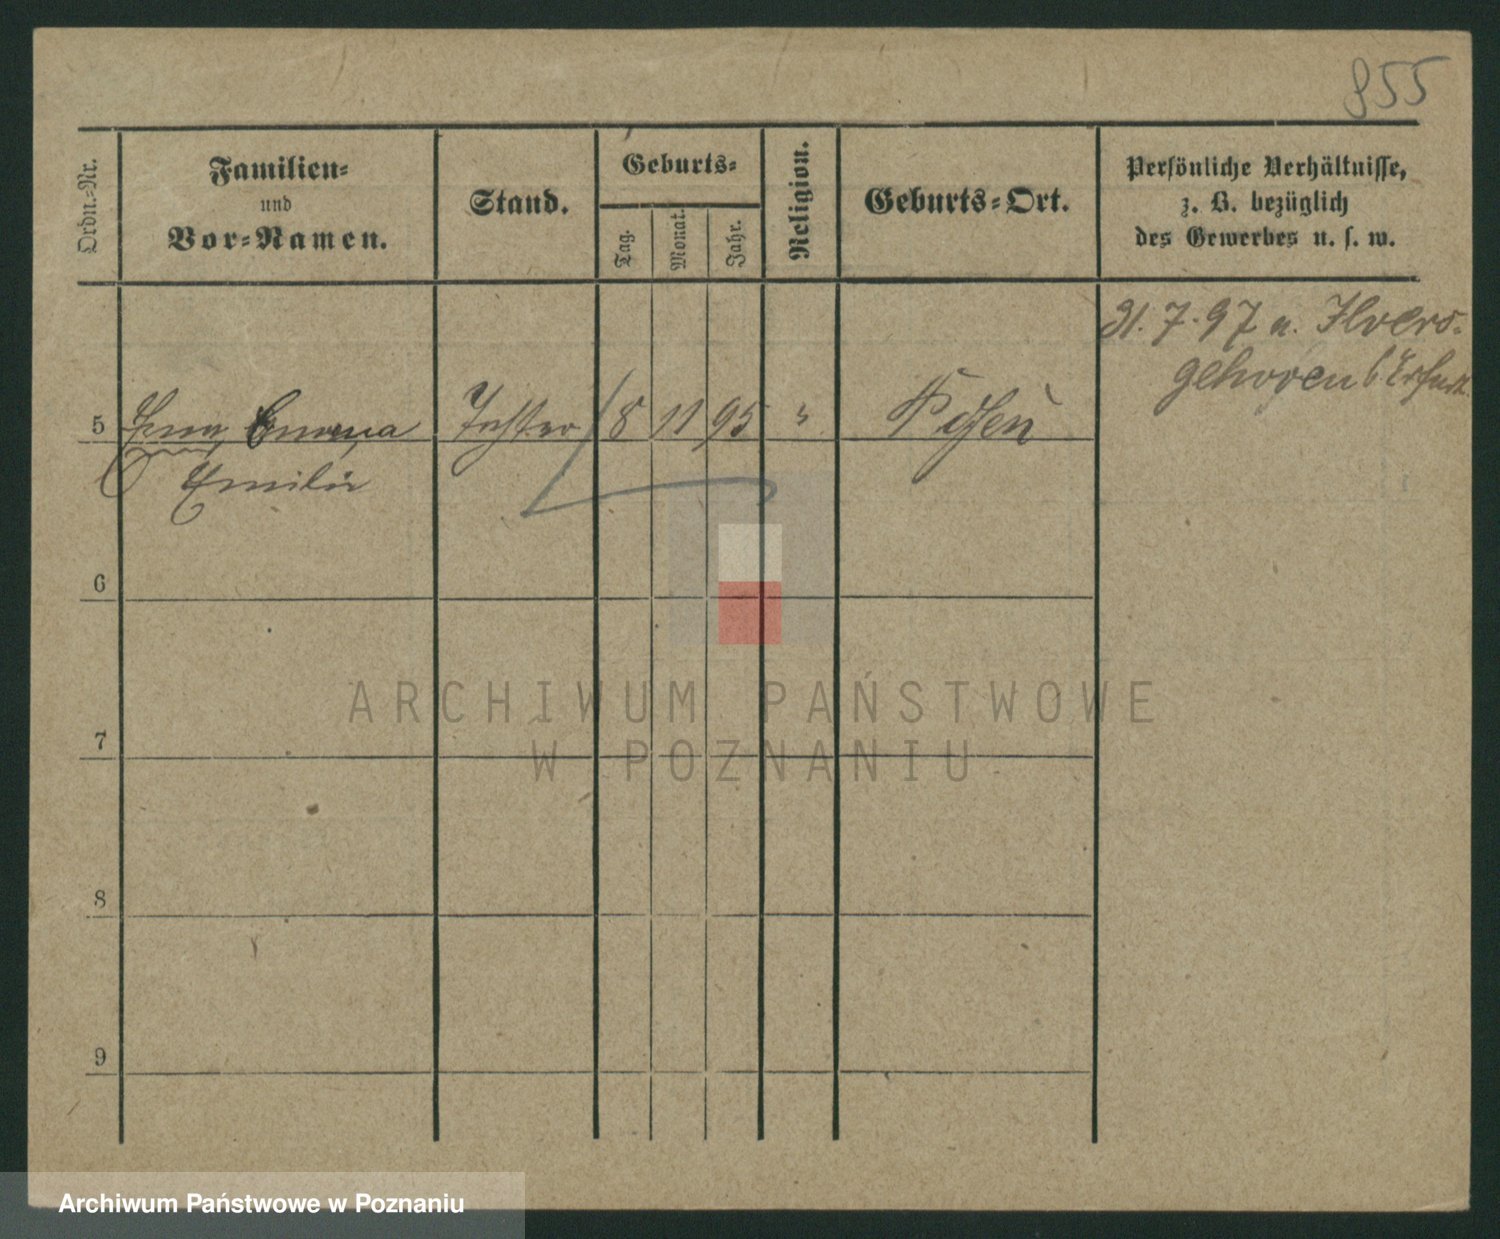 855
Ordn.-Nr.
Familien-
und
Vor-Namen.
Stand.
Geburts-
Tag.
Monat.
Jahr.
Religion.
Geburts-Ort.
Persönliche Verhältnisse,
z. B. bezüglich
des Gewerbes u. s. w.
31.7.97 n. Ilvers-
gehoven b Erfurt
5 Erna Emma Tochter 8 11 95 " Posen
Emilie
6
7
8
9
ARCHIWUM PAŃSTWOWE
W POZNANIU
Archiwum Państwowe w Poznaniu